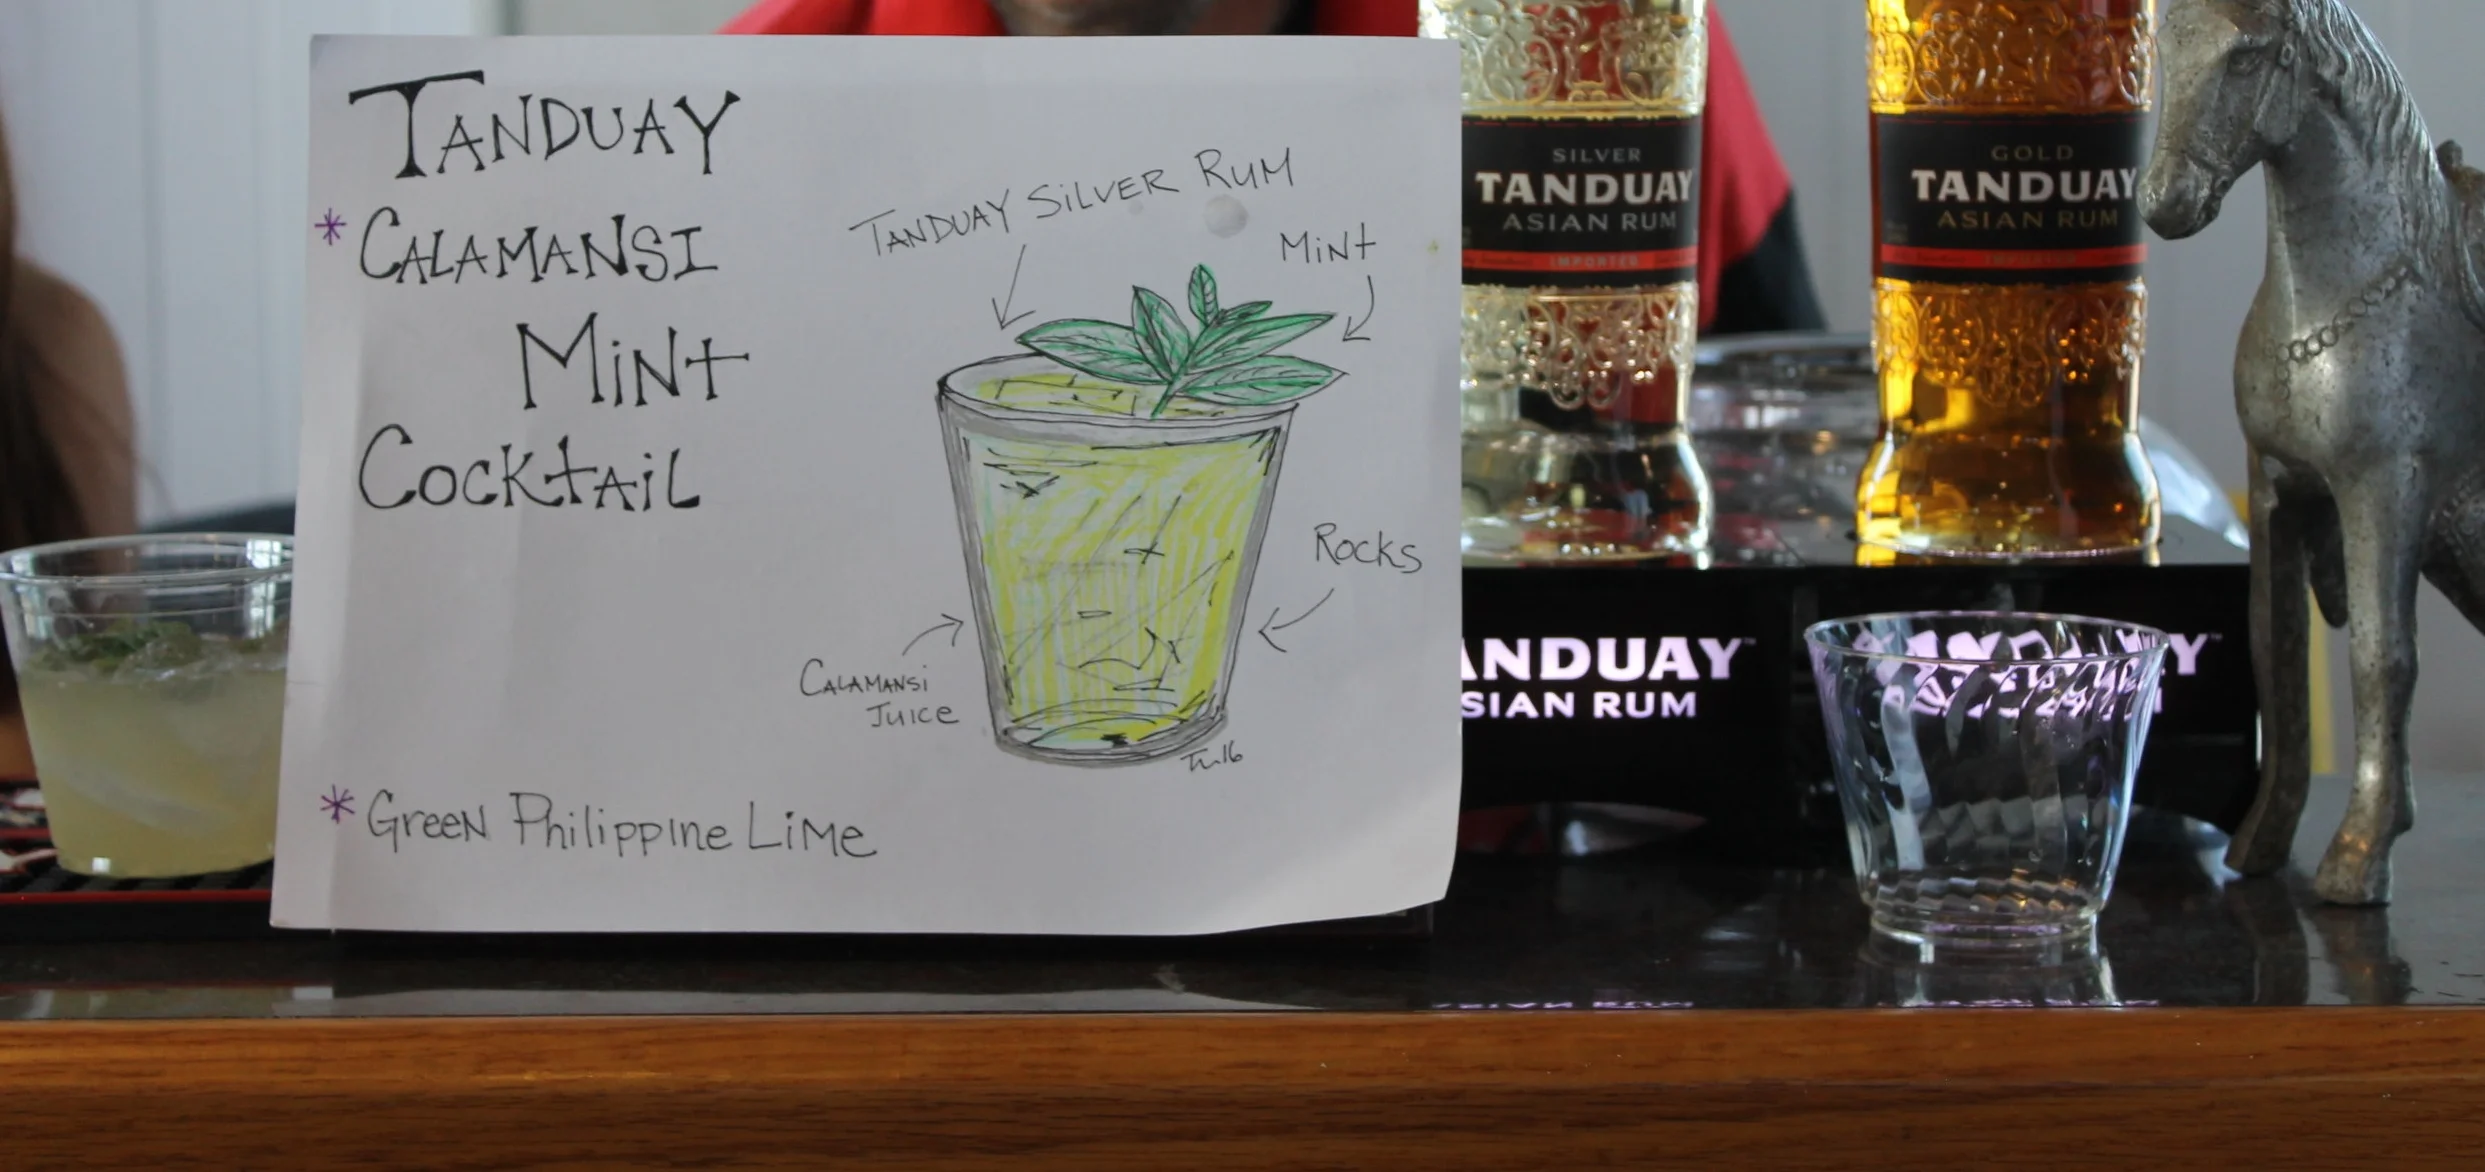 TANDUAY
* CALAMANSI
MiNt
COCKtAiL
TANDUAY SiLVER RUM
MiNt
ROCKS
CALAMANSi
JUICE
* GreeN PhilippINe LiMe
SILVER
TANDUAY
ASIAN RUM
IMPORTED
GOLD
TANDUAY
ASIAN RUM
ANDUAY™
SIAN RUM
Y™